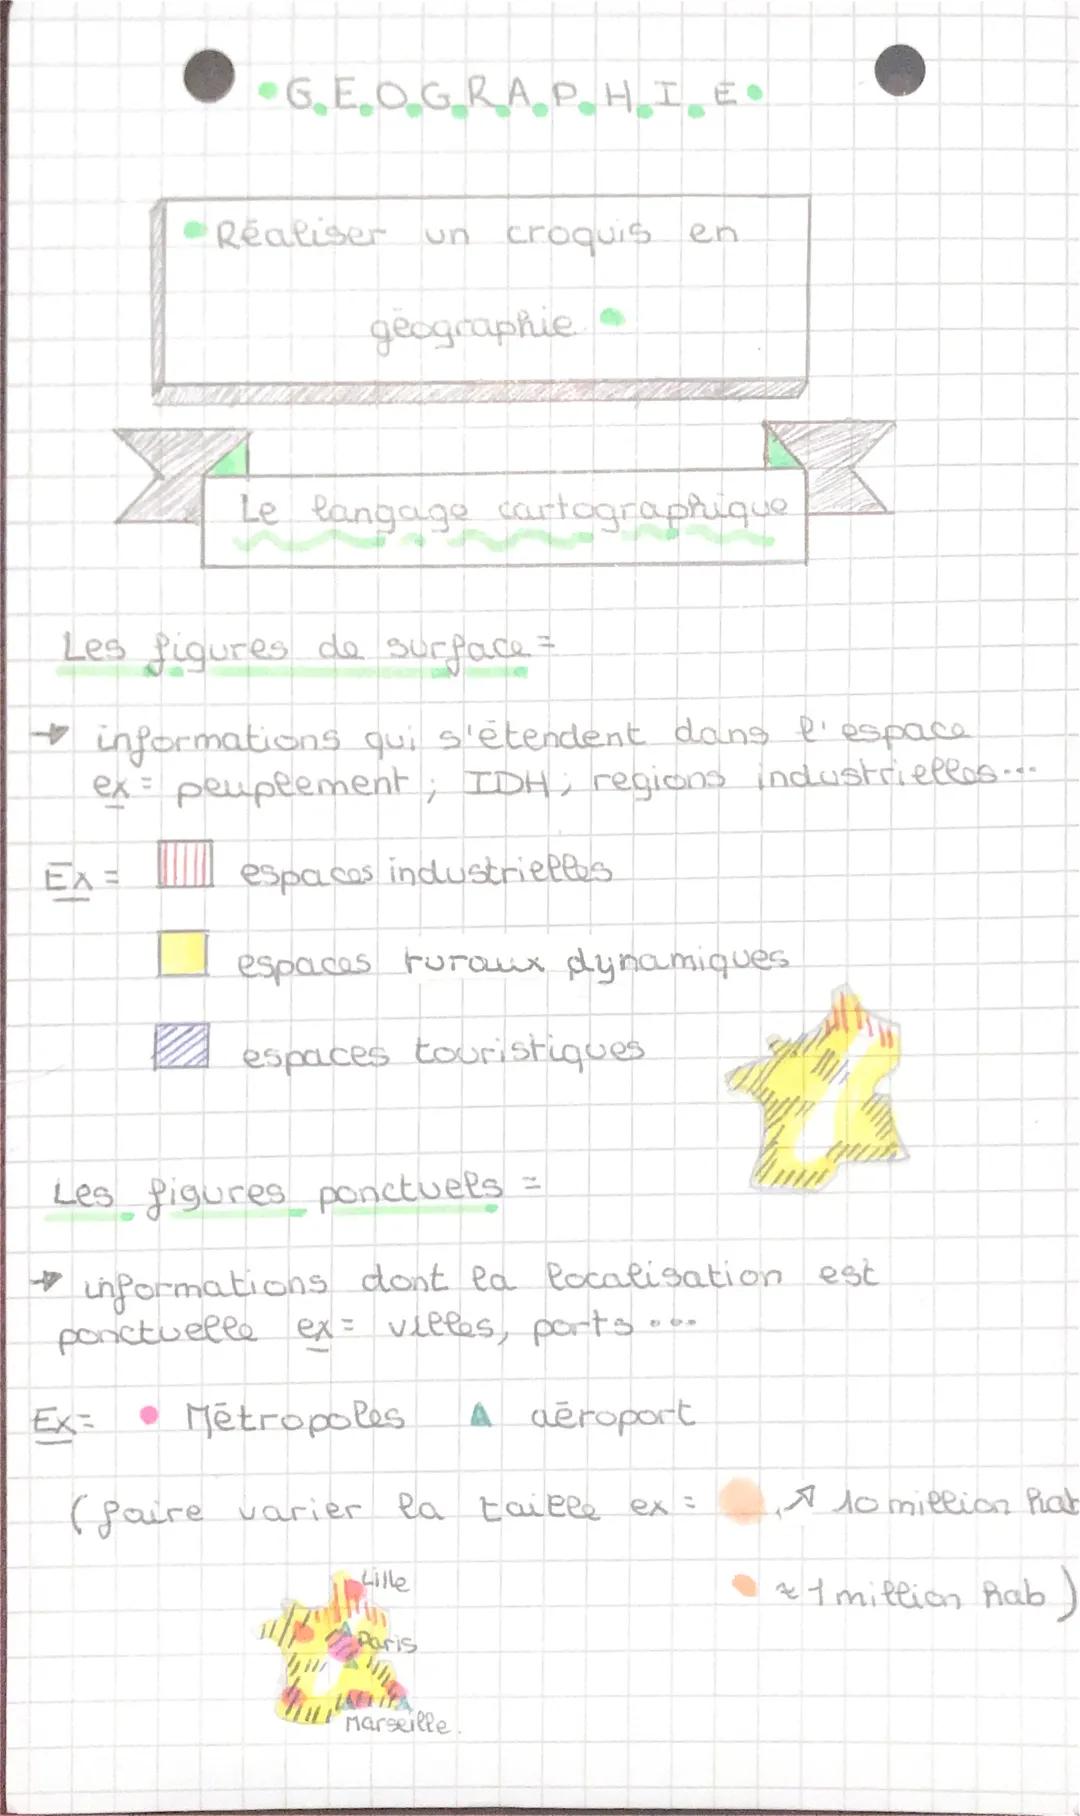 G.E.O.G.R.A.P.H.I.E
Réaliser un croquis en
géographie
Le langage cartographique
Les figures de surface =
→ informations qui s'étendent dans l'espace
ex = peuplement ; IDH ; regions industrielles...
Ex = espaces industrielles
espaces ruraux dynamiques
espaces touristiques
Les figures ponctuels =
→ informations dont la localisation est
ponctuelle ex = villes, ports ...
Ex = Métropoles aéroport
(faire varier la taille ex = ↗ 10 million hab
≈ 1 million hab)
Lille
Paris
Marseille.